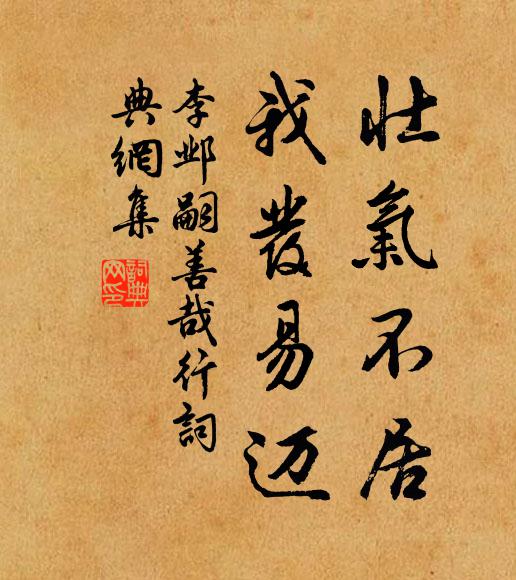 壮氣不居
我發易迈
李邺嗣善哉行詞
典網集
詞典网印